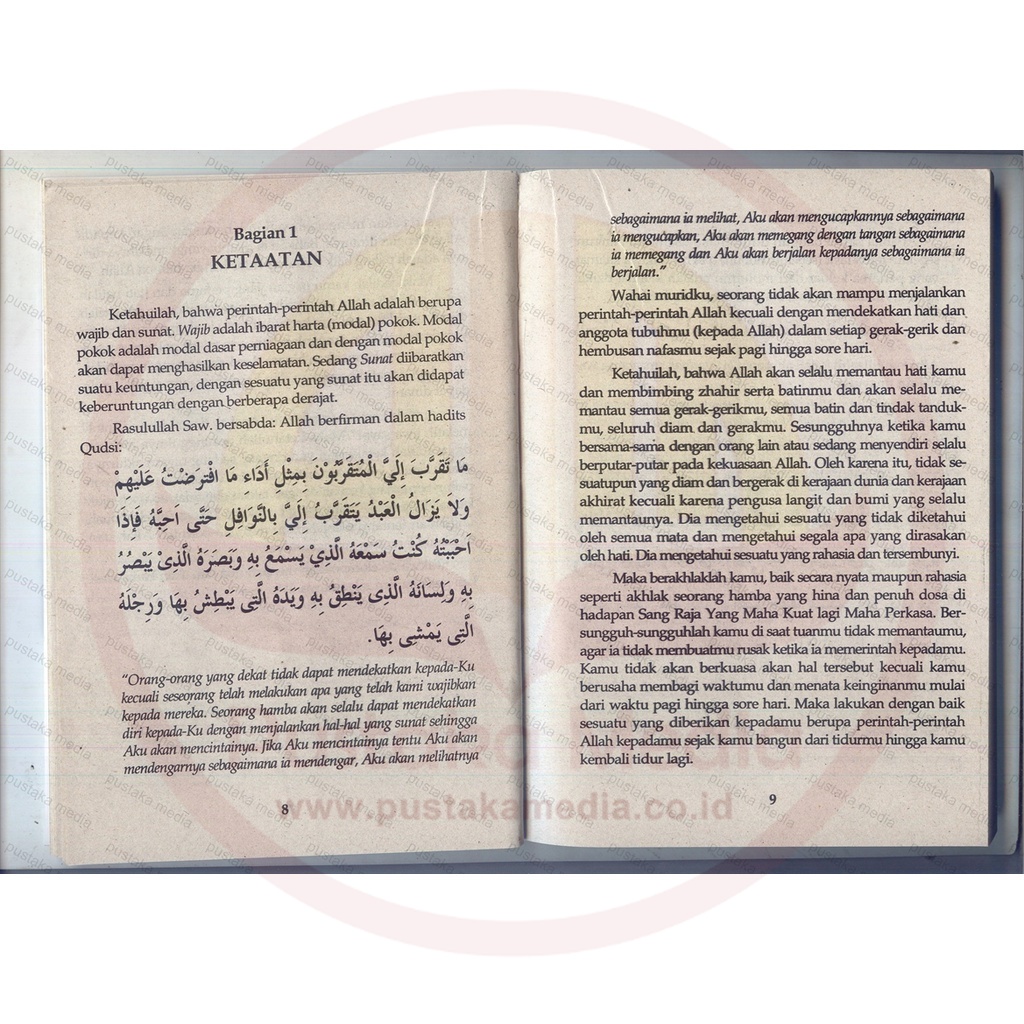 Bagian 1
KETAATAN
Ketahuilah, bahwa perintah-perintah Allah adalah berupa
wajib dan sunat. Wajib adalah ibarat harta (modal) pokok. Modal
pokok adalah modal dasar perniagaan dan dengan modal pokok
akan dapat menghasilkan keselamatan. Sedang Sunat diibaratkan
suatu keuntungan, dengan sesuatu yang sunat itu akan didapat
keberuntungan dengan berberapa derajat.
Rasulullah Saw. bersabda: Allah berfirman dalam hadits
Qudsi:
مَا تَقَرَّبَ إِلَيَّ الْمُتَقَرَّبُوْنَ بِمِثْلِ أَدَاءِ مَا افْتَرَضْتُ عَلَيْهِمْ
وَلاَ يَزَالُ الْعَبْدُ يَتَقَرَّبُ إِلَيَّ بِالنَّوَافِلِ حَتَّى اَحِبَّهُ فَإِذَا
اَحْبَبْتُهُ كُنْتُ سَمْعَهُ الَّذِيْ يَسْمَعُ بِهِ وَبَصَرَهُ الَّذِيْ يَبْصُرُ
بِهِ وَلِسَانَهُ الَّذِى يَنْطِقُ بِهِ وَيَدَهُ الَّتِى يَبْطِشُ بِهَا وَرِجْلَهُ
الَّتِى يَمْشِى بِهَا.
“Orang-orang yang dekat tidak dapat mendekatkan kepada-Ku
kecuali seseorang telah melakukan apa yang telah kami wajibkan
kepada mereka. Seorang hamba akan selalu dapat mendekatkan
diri kepada-Ku dengan menjalankan hal-hal yang sunat sehingga
Aku akan mencintainya. Jika Aku mencintainya tentu Aku akan
mendengarnya sebagaimana ia mendengar, Aku akan melihatnya
8
sebagaimana ia melihat, Aku akan mengucapkannya sebagaimana
ia mengucapkan, Aku akan memegang dengan tangan sebagaimana
ia memegang dan Aku akan berjalan kepadanya sebagaimana ia
berjalan.”
Wahai muridku, seorang tidak akan mampu menjalankan
perintah-perintah Allah kecuali dengan mendekatkan hati dan
anggota tubuhmu (kepada Allah) dalam setiap gerak-gerik dan
hembusan nafasmu sejak pagi hingga sore hari.
Ketahuilah, bahwa Allah akan selalu memantau hati kamu
dan membimbing zhahir serta batinmu dan akan selalu me-
mantau semua gerak-gerikmu, semua batin dan tindak tanduk-
mu, seluruh diam dan gerakmu. Sesungguhnya ketika kamu
bersama-sama dengan orang lain atau sedang menyendiri selalu
berputar-putar pada kekuasaan Allah. Oleh karena itu, tidak se-
suatupun yang diam dan bergerak di kerajaan dunia dan kerajaan
akhirat kecuali karena pengusa langit dan bumi yang selalu
memantaunya. Dia mengetahui sesuatu yang tidak diketahui
oleh semua mata dan mengetahui segala apa yang dirasakan
oleh hati. Dia mengetahui sesuatu yang rahasia dan tersembunyi.
Maka berakhlaklah kamu, baik secara nyata maupun rahasia
seperti akhlak seorang hamba yang hina dan penuh dosa di
hadapan Sang Raja Yang Maha Kuat lagi Maha Perkasa. Ber-
sungguh-sungguhlah kamu di saat tuanmu tidak memantaumu,
agar ia tidak membuatmu rusak ketika ia memerintah kepadamu.
Kamu tidak akan berkuasa akan hal tersebut kecuali kamu
berusaha membagi waktumu dan menata keinginanmu mulai
dari waktu pagi hingga sore hari. Maka lakukan dengan baik
sesuatu yang diberikan kepadamu berupa perintah-perintah
Allah kepadamu sejak kamu bangun dari tidurmu hingga kamu
kembali tidur lagi.
9
www.pustakamedia.co.id
pustaka media